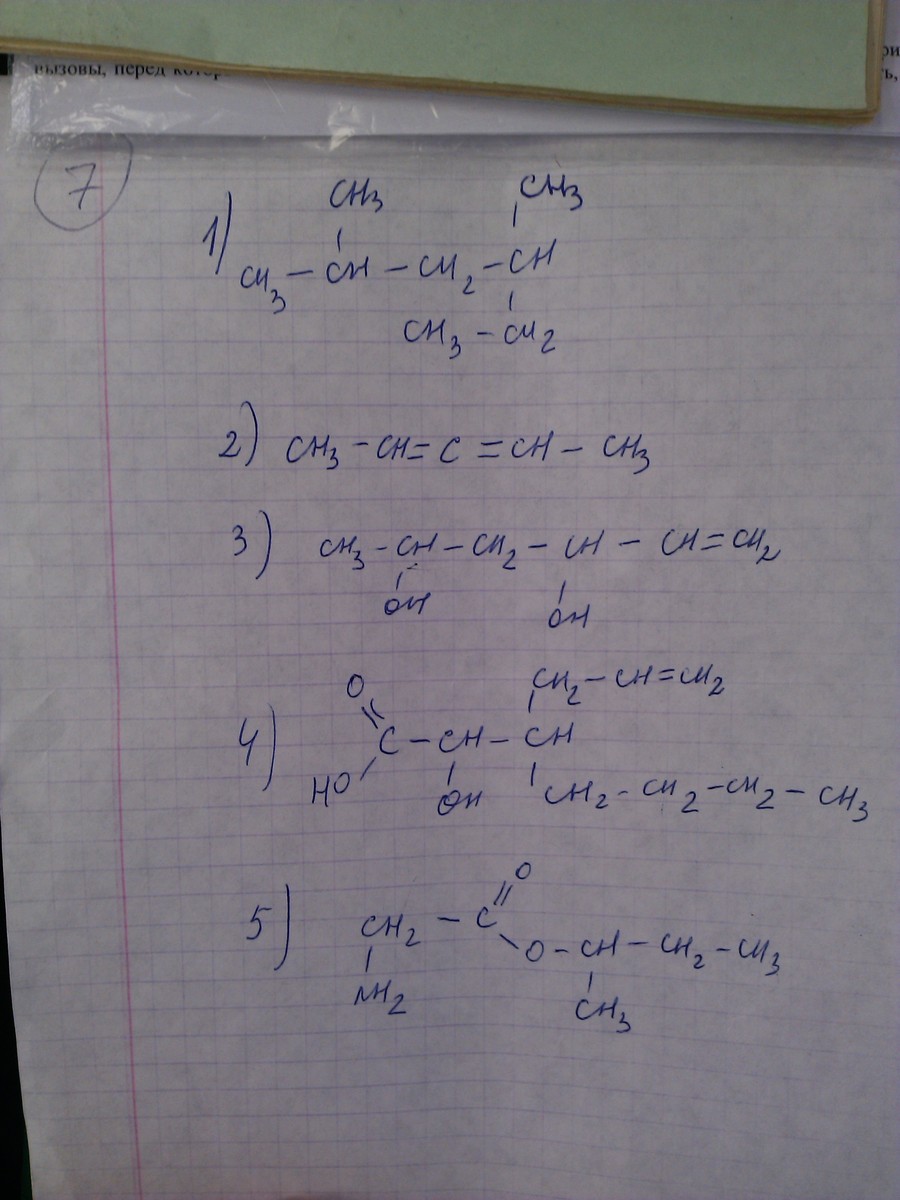 вызовы, перед
7
CH3 CH3
1) CH3 – CH – CH2 – CH
CH3 – CH2
2) CH3 – CH = C = CH – CH3
3) CH3 – CH – CH2 – CH – CH = CH2
OH OH
CH2 – CH = CH2
O
4) C – CH – CH
HO OH CH2 – CH2 – CH2 – CH3
O
5) CH2 – C
O – CH – CH2 – CH3
NH2 CH3